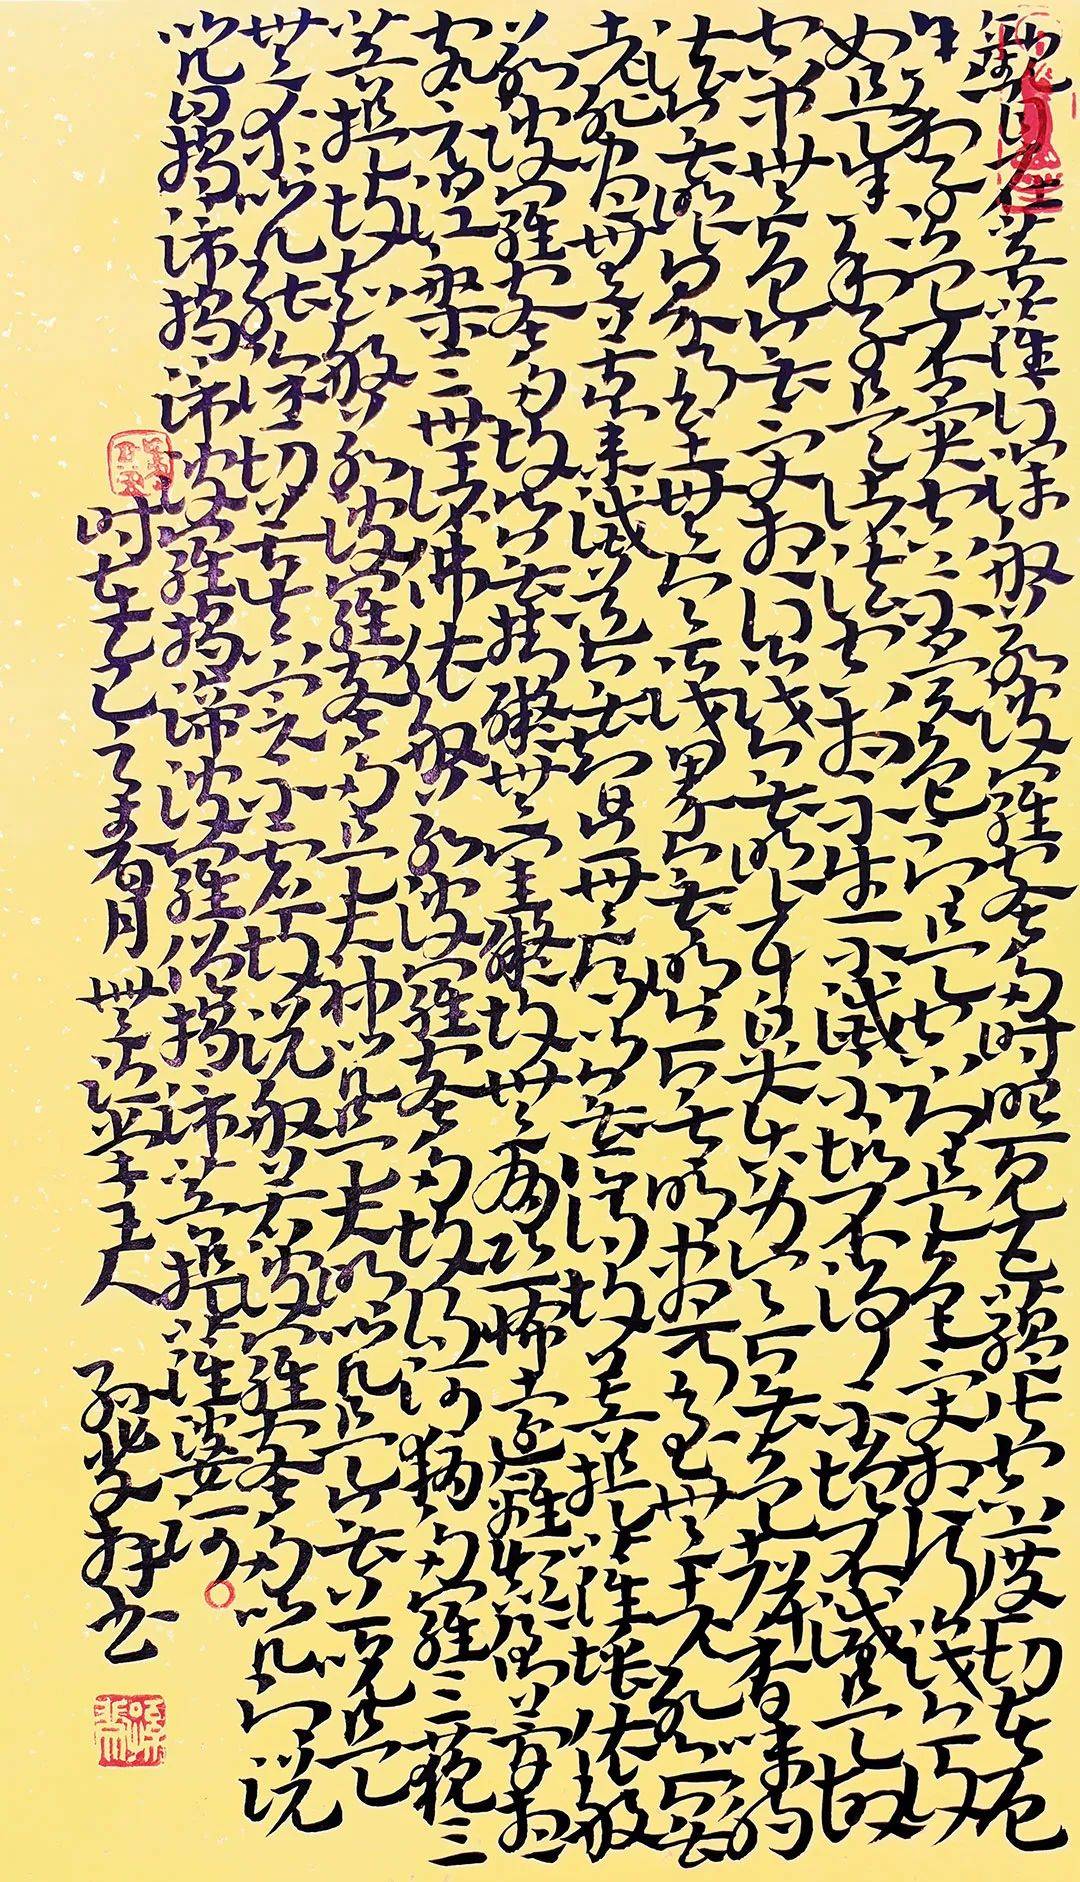 觀自在菩薩行深般若波羅蜜多时照見五蘊皆空度一切苦厄
舍利子色不异空空不异色色即是空空即是色受想行识亦復
如是舍利子是诸法空相不生不滅不垢不净不增不減是故
空中無色無受想行识無眼耳鼻舌身意無色聲香味觸
法無眼界乃至無意识界無無明亦無無明盡乃至無老死亦無
老死盡無苦集滅道無智亦無得以無所得故菩提薩埵依般
若波羅蜜多故心無挂礙無挂礙故無有恐怖遠離顛倒夢想
究竟涅槃三世诸佛依般若波羅蜜多故得阿耨多羅三藐三
菩提故知般若波羅蜜多是大神咒是大明咒是無上咒是
無等等咒能除一切苦真实不虚故说般若波羅蜜多咒即说
咒曰揭谛揭谛波羅揭谛波羅僧揭谛菩提薩婆诃
时在乙巳之春月 主人 拜书